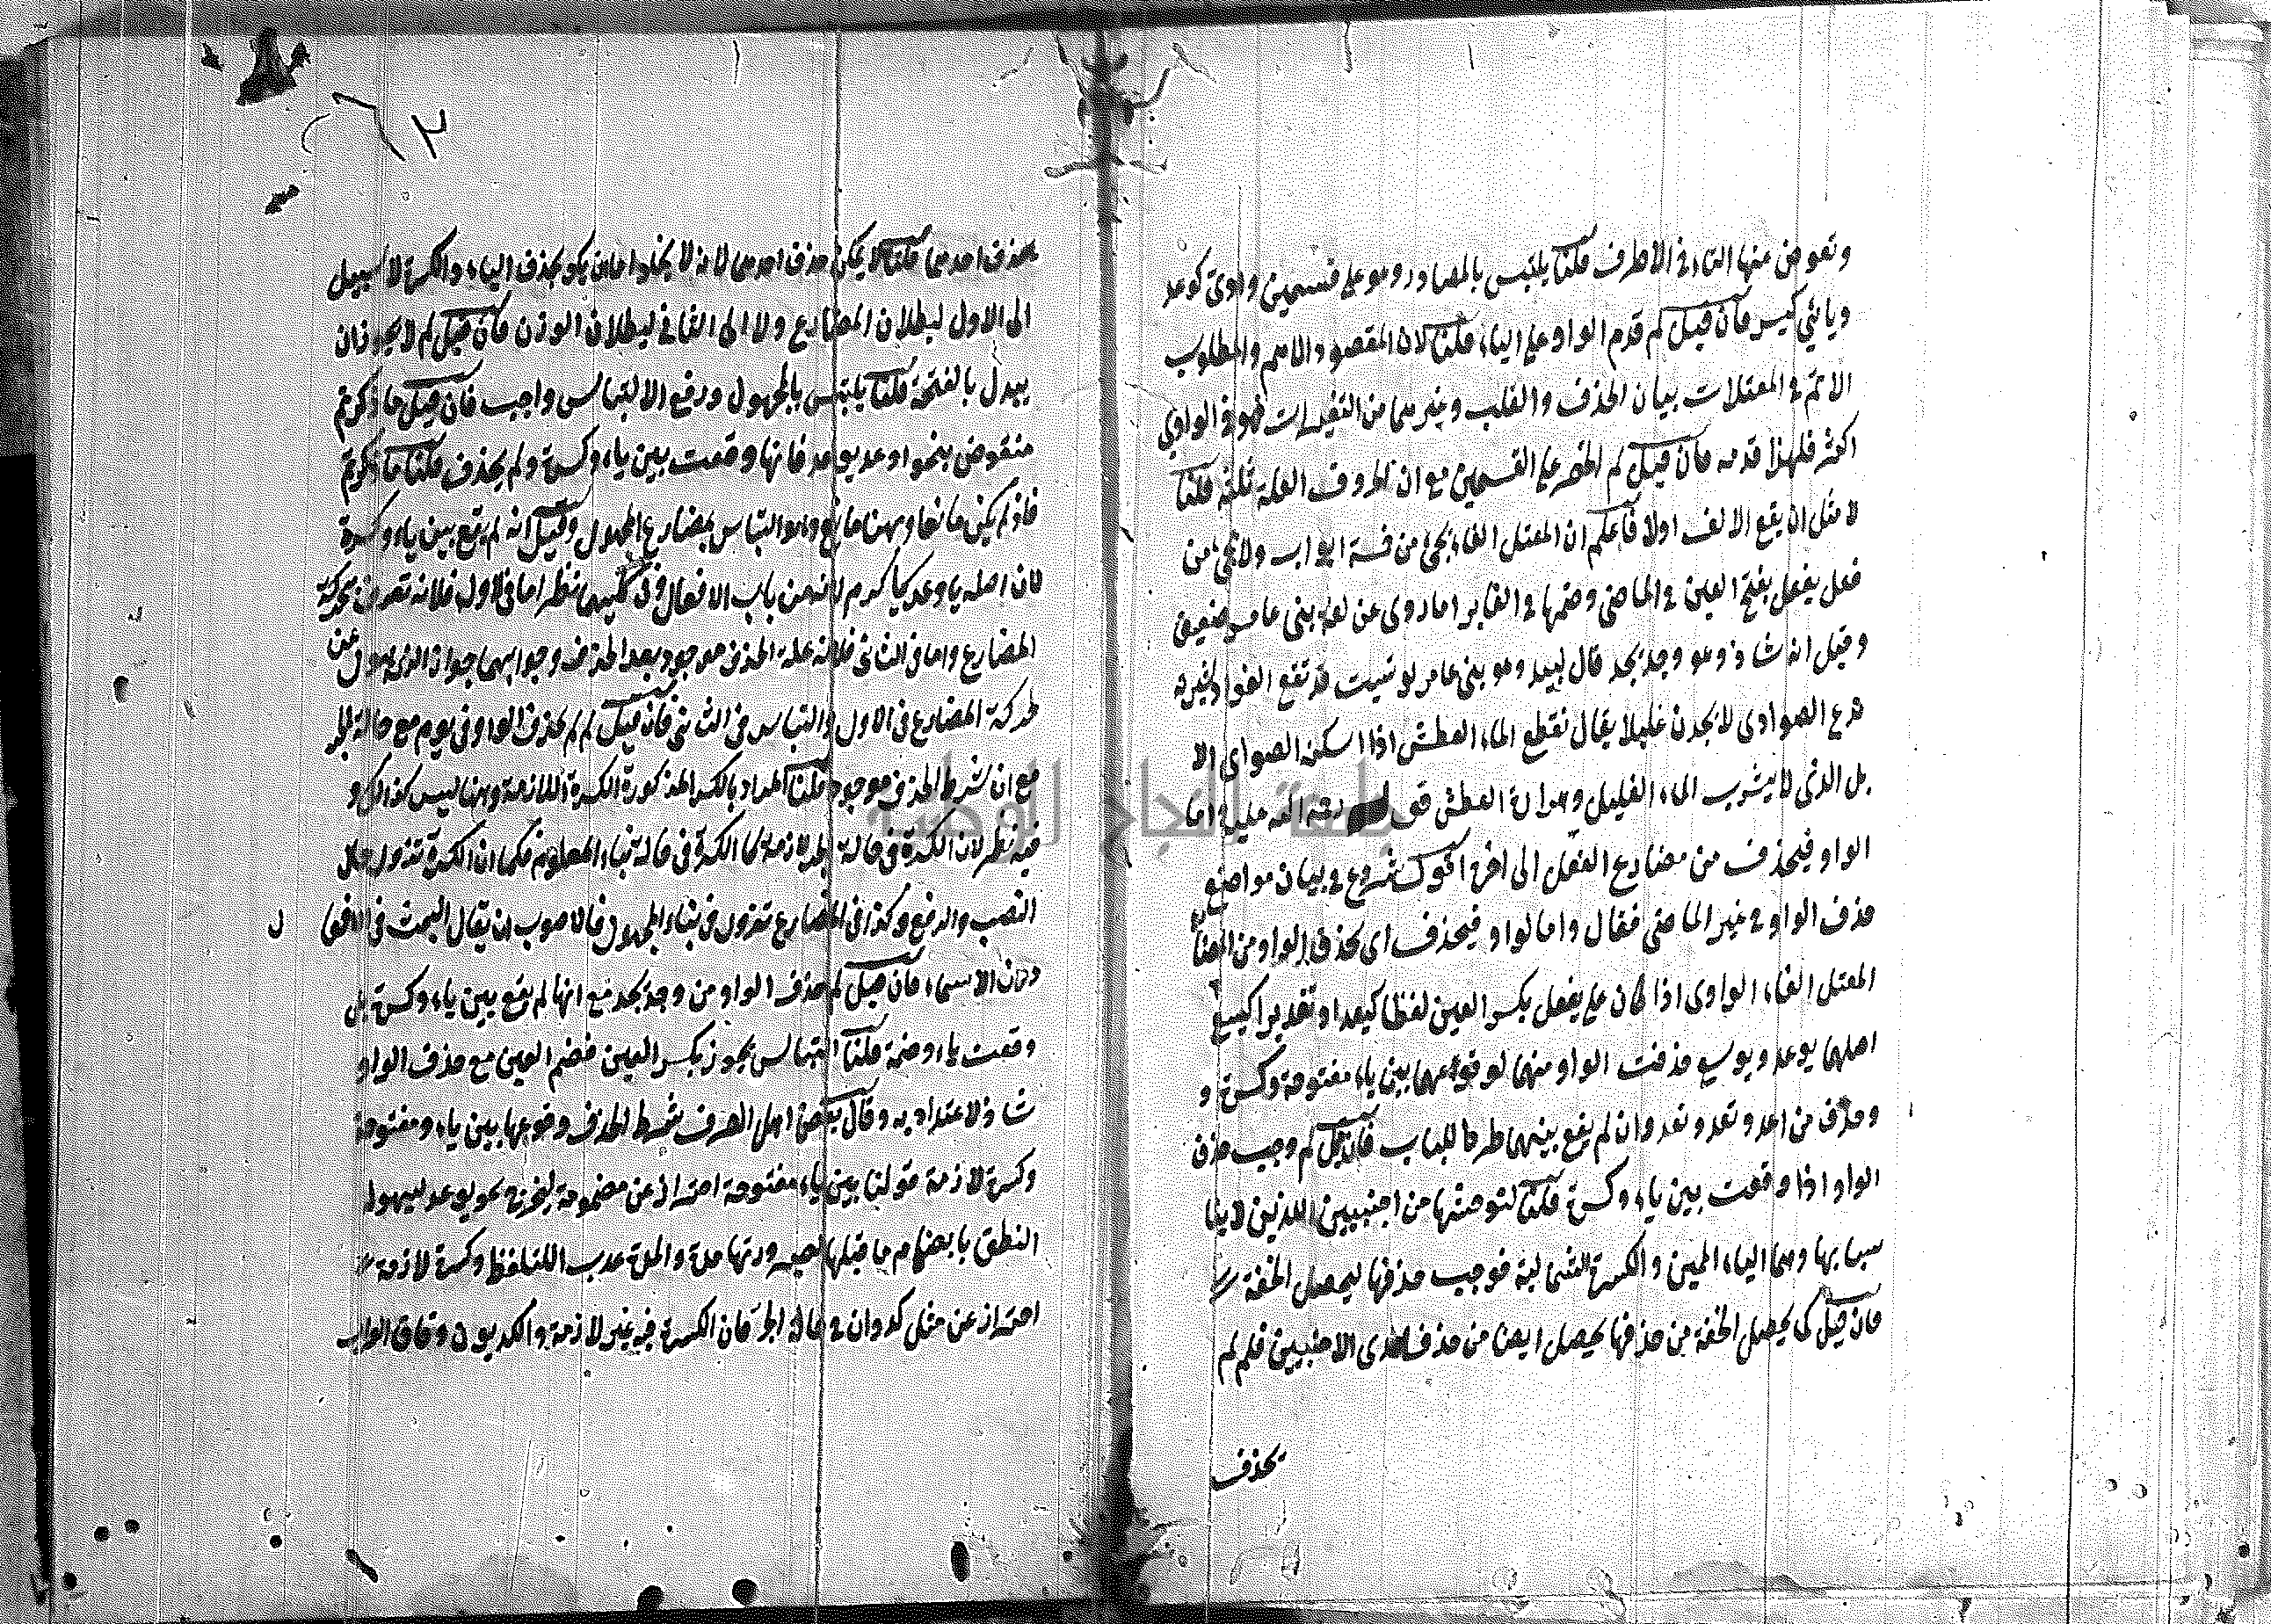 وتعوض منها التاء في الاطرف قلنا يلتبس بالمصادر وهو على قسمين واوي كوعد
ويائي كيسر فان قيل لم قدم الواو على الياء قلنا لان المقصود الاهم والمطلوب
الاتم في المعتلات بيان الحذف والقلب وغيرهما من التغيرات فهو في الواوي
اكثر فلهذا قدمه فان قيل لم انحصر على القسمين مع ان حروف العلة ثلثة قلنا
لا مثل ان يقع الالف اولا فاعلم ان المعتل الفاء يجئ من خمسة ابواب ولا يجئ من
فعل يفعل بفتح العين في الماضي وضمها في الغابر اما روى عن لغة بني عامر ضعيف
وقيل انه شاذ وهو وجد يجد قال لبيد وهو بني عامر لو شئت قد نقع الفواد
الصوادي لا يجدن غليلا يقال نقطع الماء العطش اذا اسكنه الصوادي الا
بل الذي لا يشرب الماء القليل وحرارة العطش قوله رحمة الله عليه واما
الواو فيحذف من مضارع الفعل الى اخره اقول شروع في بيان مواضع
حذف الواو في غير الماضي فقال واما الواو فيحذف اى يحذف الواو من
المعتل الفاء الواوى اذا كان على يفعل بكسر العين لفظا كيعد او تقديرا كيسع
اصلهما يوعد ويوسع حذفت الواو منهما لوقوعها بين ياء مفتوحة وكسرة و
وحذف من اعد وتعد ونعد وان لم يقع بينهما طردا للباب فان قيل لم وجب حذف
الواو اذا وقعت بين ياء وكسرة قلنا لتوحشها من اجنبيين اللذين لا
وهما الياء والكسرة فوجب حذفها ليحصل الخفة
فان قيل كما يحصل الخفة من حذفها يحصل ايضا من حذف احدى الاجنبيين فلم لم
يحذف
٦٢
يحذف احدهما قلنا لا يمكن حذف احدهما لانه لا يخلو اما ان يكون بحذف الياء والكسرة لا سبيل
الى الاول لبطلان المضارع ولا الى الثاني لبطلان الوزن فان قيل لم لا يجوز ان
يبدل بالفتحة قلنا يلتبس بالمجهول ودفع الالتباس واجب فان قيل ما ذكرتم
منقوض بنحو اوعد يوعد فانها وقعت بين ياء وكسرة ولم يحذف قلنا ما ذكرتم
فاذ لم يكن مانعا وههنا مانع وهو التباس بمضارع المجهول وقيل انه لم يقع بين ياء وكسرة
لان اصله ياوعد كياكرم لانه من باب الافعال وفي كليهما نظر اما في الاول فلانه
المضارع واما في الثاني فلانه علة الحذف موجود بعد الحذف وجوابهما جواز الذهول عن
حركة المضارع في الاول والتباس في الثاني فان قيل لم لم يحذف الواو في يوم مع حالة الجر
مع ان شرط الحذف موجود قلنا المراد بالكسر المذكورة الكسرة اللازمة وههنا ليس كذلك و
فيه نظر لان الكسرة في حالة الجر لازمة كما الكسرة في حالة بناء المعلوم فكما ان الكسرة تزول حال
النصب والرفع وكذا في المضارع تزول في بناء المجهول فالاصوب ان يقال البحث في الافعا ل
دون الاسماء فان قيل لم حذف الواو من وجد يجد مع انها لم يقع بين ياء وكسرة بل
وقعت ياء وضمة قلنا يجوز بكسر العين فضم العين مع حذف الواو
شاذ لا اعتداد به وقال بعض اهل الصرف شرط الحذف وقوعها بين ياء ومفتوحة
وكسرة لازمة قولنا بين ياء مفتوحة احترازعن مضمومة ليخرج نحو يوعد لسهولة
النطق بها بعد ضم ما قبلها لصيرورتها مدة والمدة عذب التلفظ وكسرة لازمة
احترازعن مثل كدوان في حالة الجر فان الكسرة فيه غير لازمة